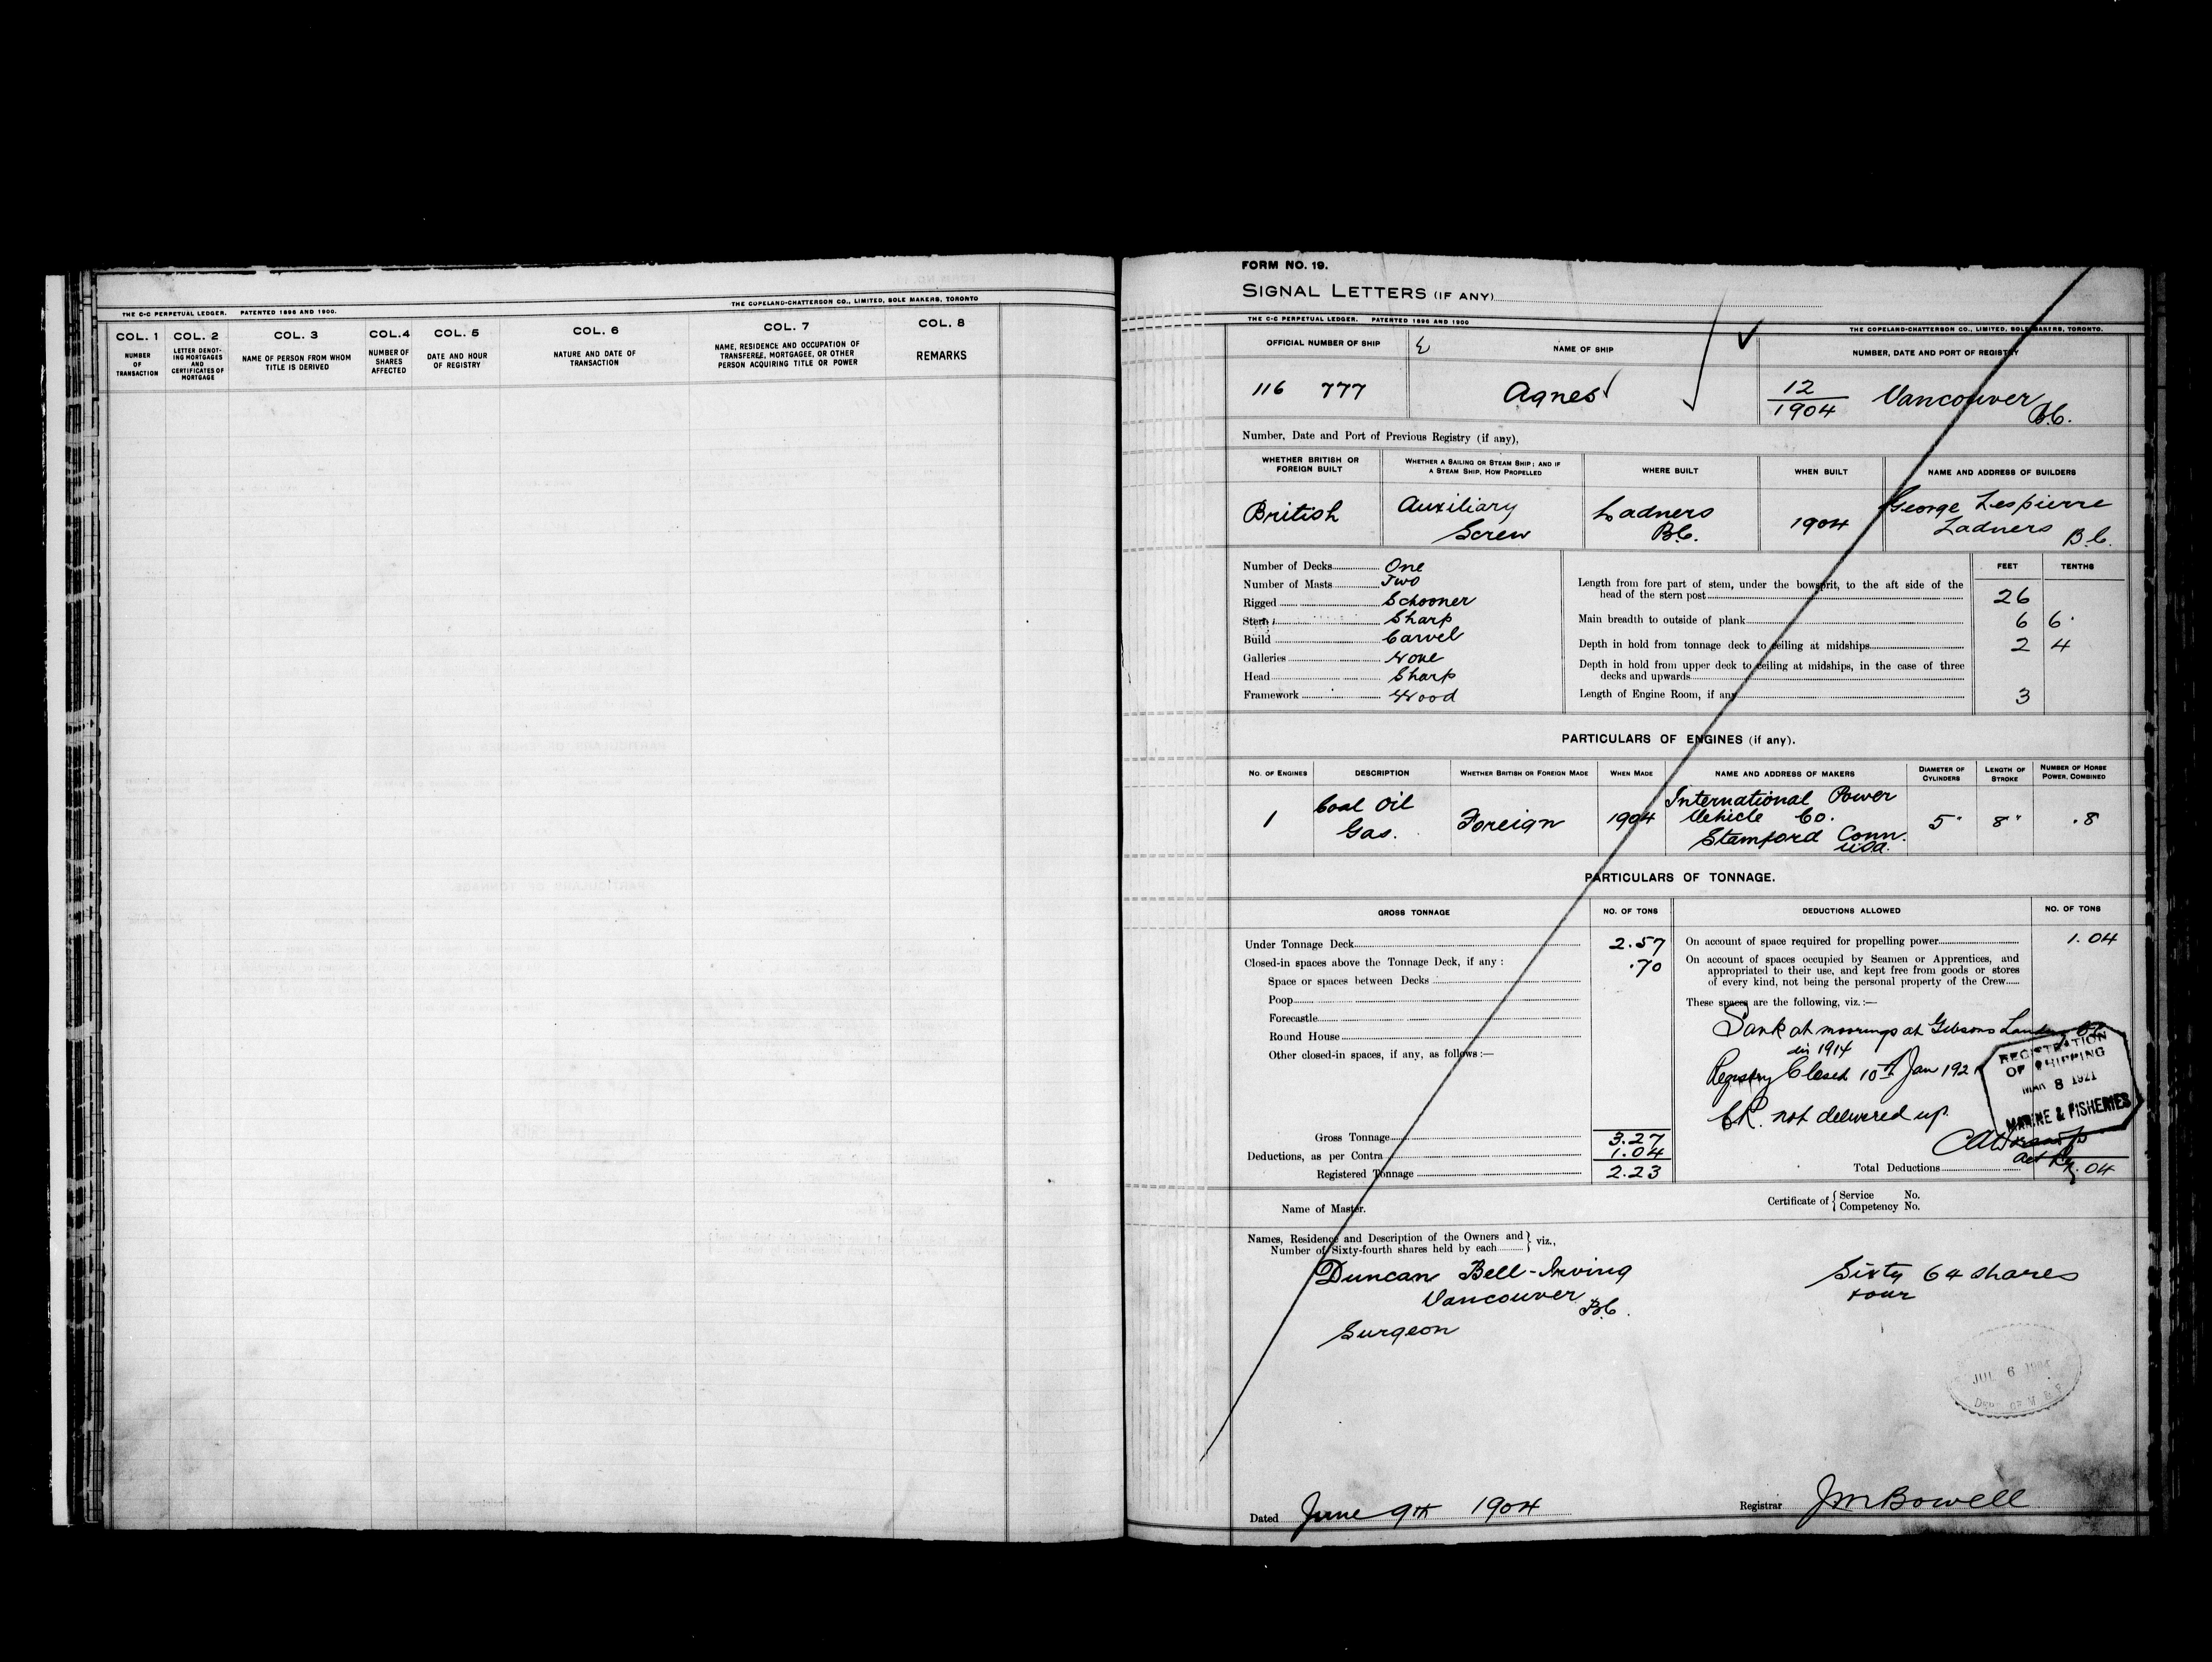 THE COPELAND-CHATTERSON CO., LIMITED, SOLE MAKERS, TORONTO
THE C-C PERPETUAL LEDGER. PATENTED 1896 AND 1900.
COL. 1 COL. 2 COL. 3 COL. 4 COL. 5 COL. 6 COL. 7 COL. 8
NUMBER OF TRANSACTION
LETTER DENOT-
ING MORTGAGES
AND
CERTIFICATES OF
MORTGAGE
NAME OF PERSON FROM WHOM
TITLE IS DERIVED
NUMBER OF
SHARES
AFFECTED
DATE AND HOUR
OF REGISTRY
NATURE AND DATE OF
TRANSACTION
NAME, RESIDENCE AND OCCUPATION OF
TRANSFEREE, MORTGAGEE, OR OTHER
PERSON ACQUIRING TITLE OR POWER
REMARKS
FORM NO. 19.
SIGNAL LETTERS (IF ANY)
THE C-C PERPETUAL LEDGER. PATENTED 1896 AND 1900
THE COPELAND-CHATTERSON CO., LIMITED, SOLE MAKERS, TORONTO.
OFFICIAL NUMBER OF SHIP NAME OF SHIP NUMBER, DATE AND PORT OF REGISTRY
116 777 Agnes 12 Vancouver
1904 B.C.
Number, Date and Port of Previous Registry (if any),
WHETHER BRITISH OR
FOREIGN BUILT
WHETHER A SAILING OR STEAM SHIP; AND IF
A STEAM SHIP, HOW PROPELLED
WHERE BUILT
WHEN BUILT
NAME AND ADDRESS OF BUILDERS
British
Auxiliary
Screw
Ladners
B.C.
1904
George Lespierre
Ladners B.C.
Number of Decks One
Number of Masts Two
Rigged Schooner
Stern Sharp
Build Carvel
Galleries None
Head Sharp
Framework Wood
FEET TENTHS
Length from fore part of stem, under the bowsprit, to the aft side of the
head of the stern post 26
Main breadth to outside of plank 6 6
Depth in hold from tonnage deck to ceiling at midships 2 4
Depth in hold from upper deck to ceiling at midships, in the case of three
decks and upwards
Length of Engine Room, if any 3
PARTICULARS OF ENGINES (if any).
NO. OF ENGINES DESCRIPTION WHETHER BRITISH OR FOREIGN MADE WHEN MADE NAME AND ADDRESS OF MAKERS DIAMETER OF CYLINDERS LENGTH OF STROKE NUMBER OF HORSE POWER, COMBINED
1
Coal Oil
Gas.
Foreign
1904
International Power
Vehicle Co.
Stamford Conn.
USA.
5" 8" .8
PARTICULARS OF TONNAGE.
GROSS TONNAGE NO. OF TONS DEDUCTIONS ALLOWED NO. OF TONS
Under Tonnage Deck 2.57
Closed-in spaces above the Tonnage Deck, if any: .70
Space or spaces between Decks
Poop
Forecastle
Round House
Other closed-in spaces, if any, as follows:—
Gross Tonnage 3.27
Deductions, as per Contra 1.04
Registered Tonnage 2.23
On account of space required for propelling power 1.04
On account of spaces occupied by Seamen or Apprentices, and
appropriated to their use, and kept free from goods or stores
of every kind, not being the personal property of the Crew
These spaces are the following, viz.:—
Sank at moorings at Gibsons Landing BC
in 1914
Registry Closed 10th Jan 1921
CR. not delivered up
REGISTRATION
OF SHIPPING
MAR 8 1921
MARINE & FISHERIES
Total Deductions 1.04
Name of Master.
Certificate of { Service No.
Competency No.
Names, Residence and Description of the Owners and } viz.,
Number of Sixty-fourth shares held by each
Duncan Bell-Irving
Vancouver
B.C.
Surgeon
Sixty 64 shares
four
JUL 6 1904
DEPT OF M & F
Dated June 9th 1904
Registrar JM Bowell